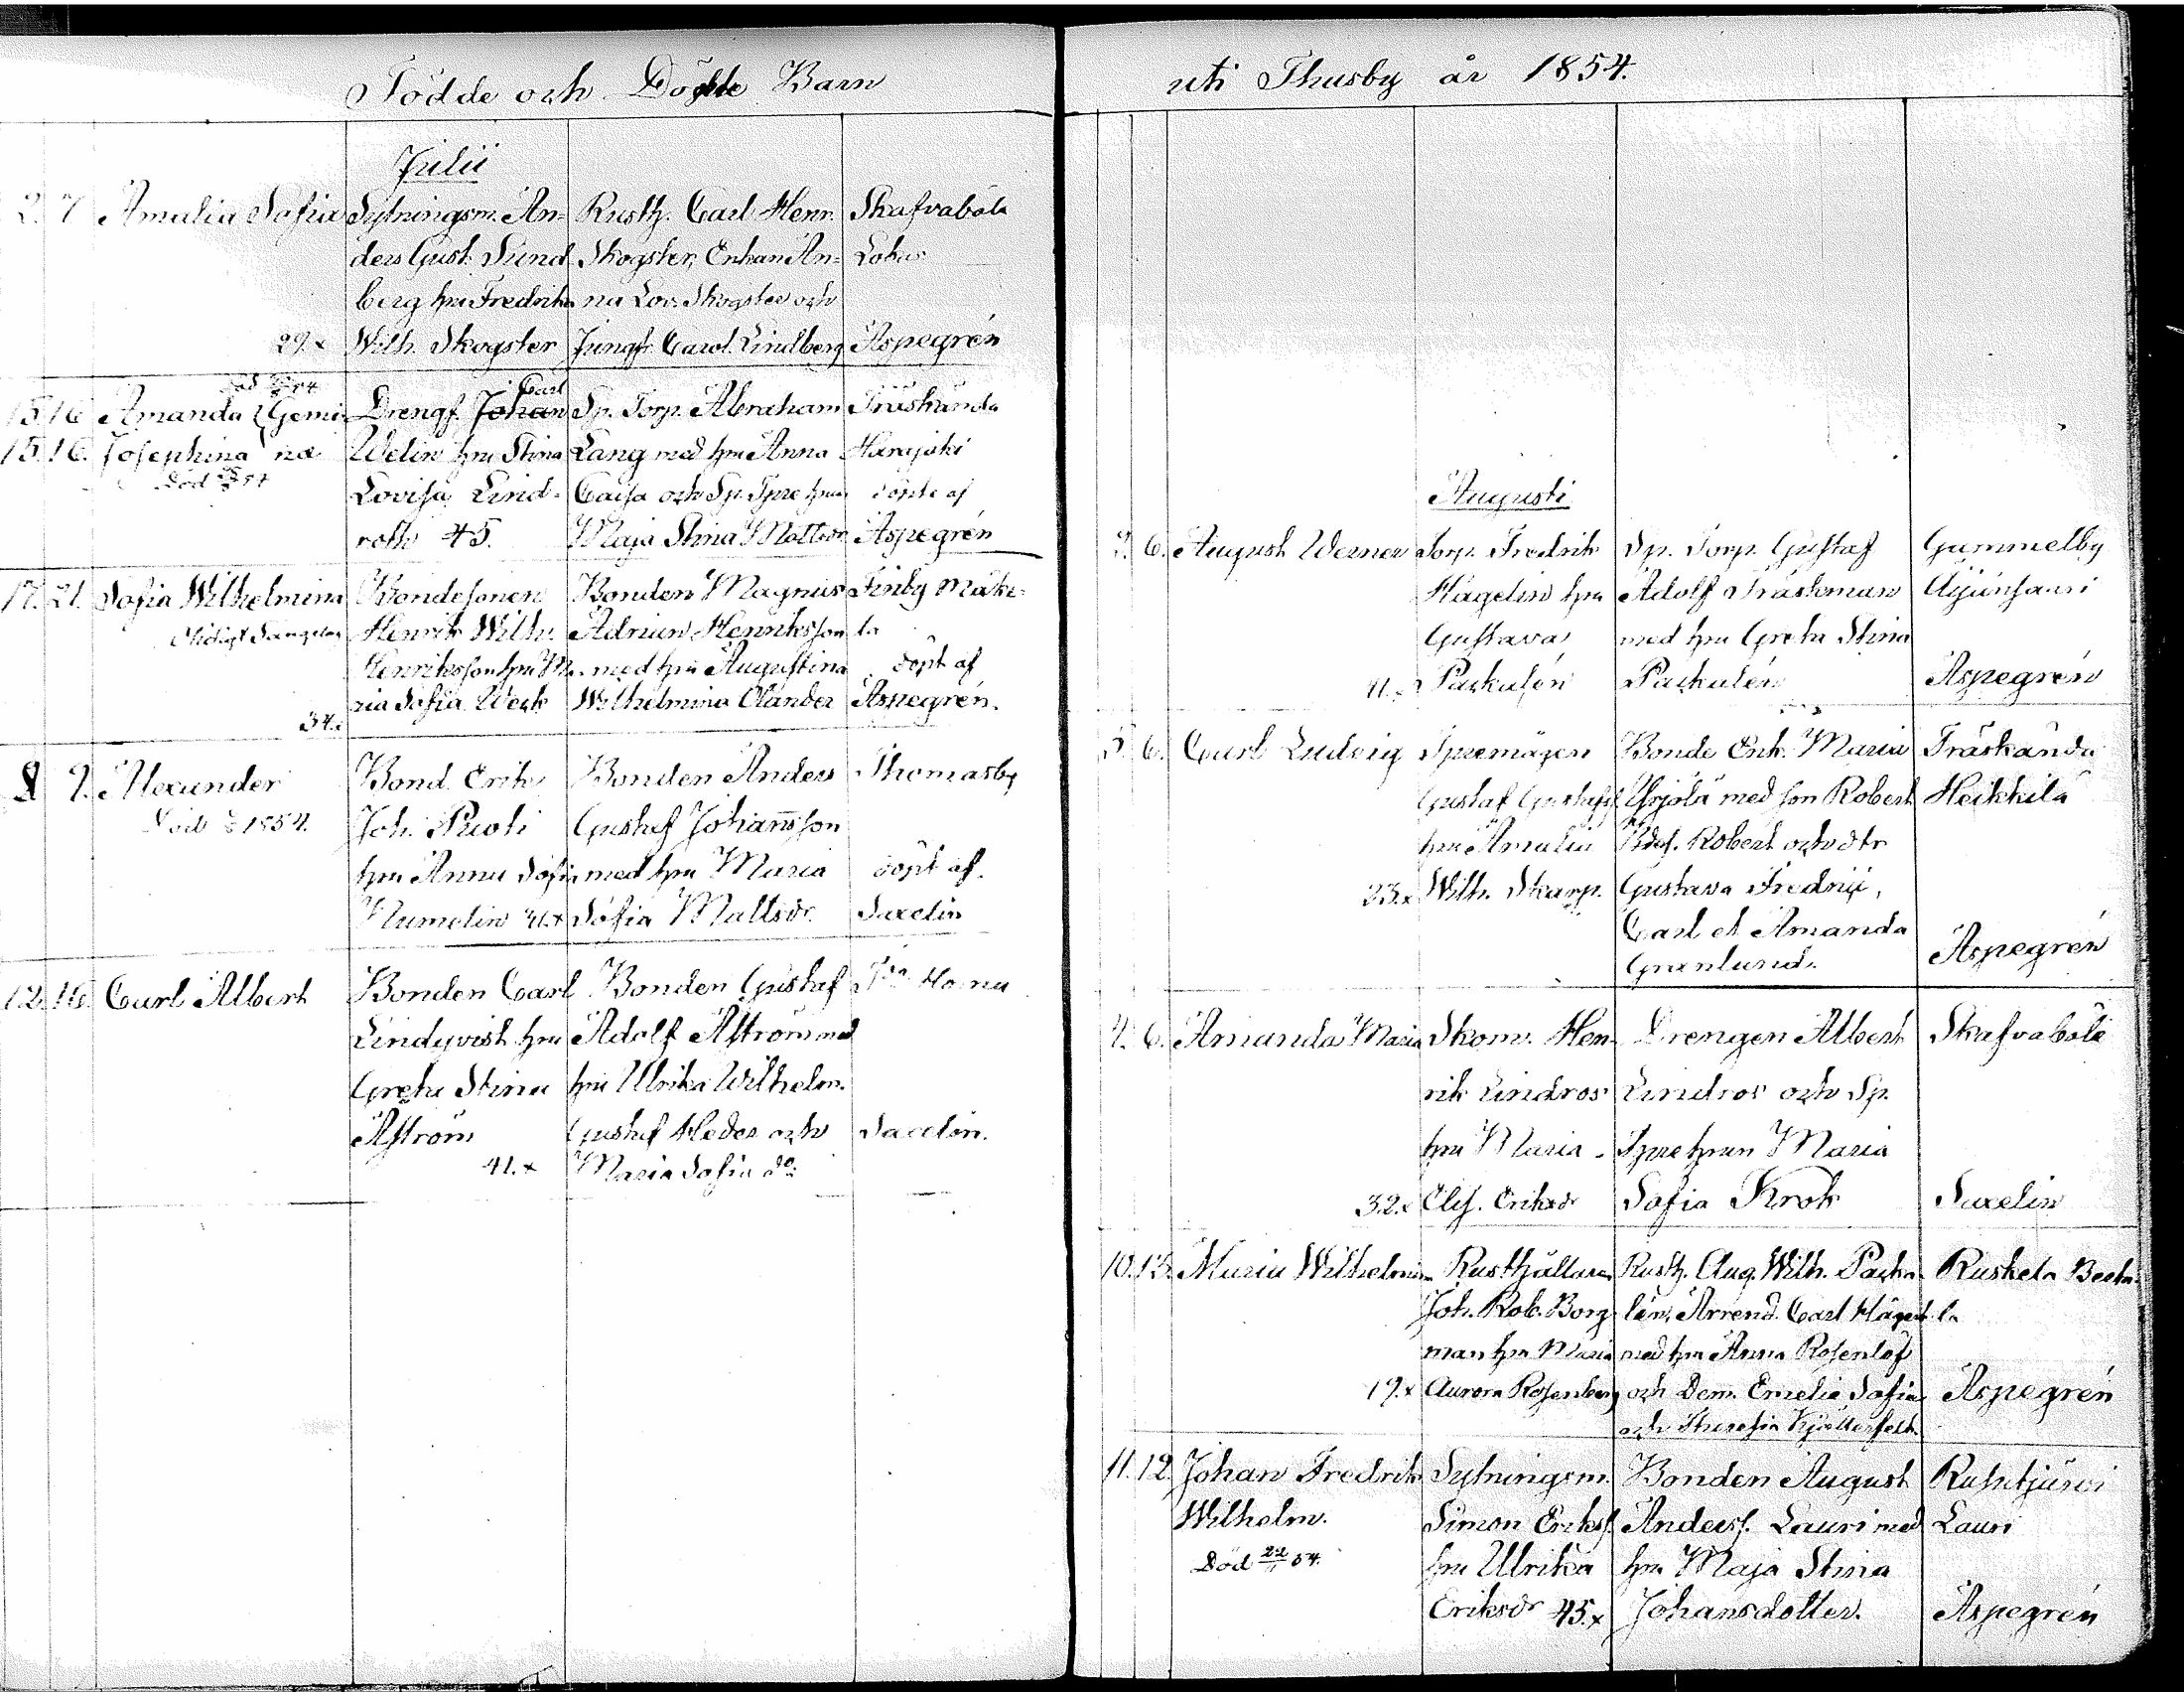 Födde och Döpte Barn
Julii
2. 7. Amalia Sofia Sytningsm. An= Rusth. Carl Henr. Skafvaböle
ders Gust. Sund Skogster, Enkan An= Lokus
berg hu Fredrika na Lov. Skogster och
29.x Wilh. Skogster Jungf. Carol. Lindberg Aspegrén
Carl
15. 16. Amanda Gemi- Drengf. Johan Sp. Torp. Abraham Träskända
15. 16. Josephina næ Welin hu Stina Lang med hu Anna Harajoki
Död 54 Lovisa Lind- Caisa och Sp. döpte af
roth 45. Maja Stina Mattsdr Aspegrén
17. 21. Sofia Wilhelmina Bondesonen Bonden Magnus Finby Mäke=
Henrik Wilh. Adrian Henriksson la
Henriksson hu Ma- med hu Augustina döpt af
34.x ria Sofia Weck Wilhelmina Olander Aspegrén.
9. Alexander Bond. Erik Bonden Anders Thomasby
Död 1854. Joh. Puoti Gustaf Johansson
hu Anna Sofia med hu Maria döpt af
Numelin 41.x Sofia Mattsdr. Saxelin
12. 16. Carl Albert Bonden Carl Bonden Gustaf
Lindqvist hu Adolf Åström med
Greta Stina hu Ulrika Wilhelm.
Åström Gustaf Heder och Saxelin.
41.x Maria Sofia do
uti Thusby år 1854.
Augusti
6. August Werner Torp. Fredrik Sp. Torp. Gustaf Gammelby
Hagelin hu Adolf Träskman
Gustava med hu Greta Stina
41.x Paskalén Paskalén Aspegrén
5. 6. Carl Ludvig Bonde Enk. Maria Träskända
Gustaf Yrjölä med son Robert Heikkilä
hu Amalia Robert och dtr
23.x Wilh. Skarp. Gustava Fredriξ,
Carl et Amanda
Granlund. Aspegrén
4. 6. Amanda Maria Skom. Hen- Drengen Albert Skafvaböle
rik Lindros Lindros och Sp.
hu Maria Maria
32.x Elis. Eriksdr Sofia Krok Saxelin
10. 13. Maria Wilhelmina Rusthållaren Rusth. Aug. Wilh. Paska- Ruskela
Joh. Rob. Borg- lén, Arrend. Carl la
man hu Maria med hu Anna Rosenlöf
19.x Aurora Rosenberg och Dem. Emelie Sofia Aspegrén
och
11. 12. Johan Fredrik Sytningsm. Bonden August Rusutjärvi
Wilhelm. Simon Eriks. Anderss. Lauri med Lauri
Död 22/11 54. hu Ulrika hu Maja Stina
Eriksdr 45.x Johansdotter. Aspegrén